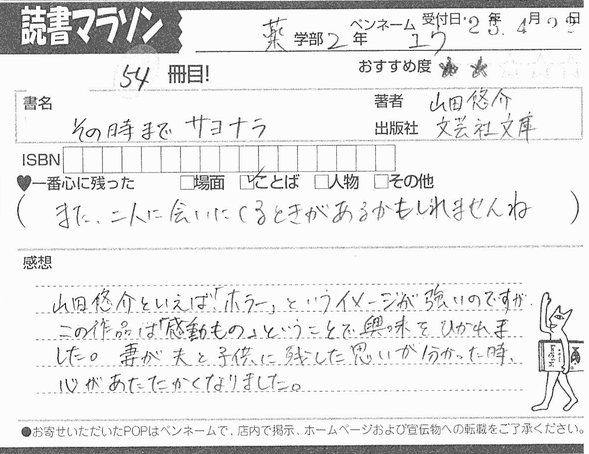 読書マラソン
薬 学部 2 年 ペンネーム ユウ 受付日・'23年4月2 日
54 冊目!
おすすめ度 ★★☆☆☆
書名 その時まで サヨナラ
著者 山田悠介
出版社 文芸社文庫
ISBN
♥一番心に残った □場面 ☑ことば □人物 □その他
(また、二人に会いにくるときがあるかもしれませんね)
感想
山田悠介といえば「ホラー」というイメージが強いのですが
この作品は「感動もの」ということで興味をひかれま
した。妻が夫と子供に残した思いが分かった時、
心があたたかくなりました。
●お寄せいただいたPOPはペンネームで、店内で掲示、ホームページおよび宣伝物への転載をご了承ください。